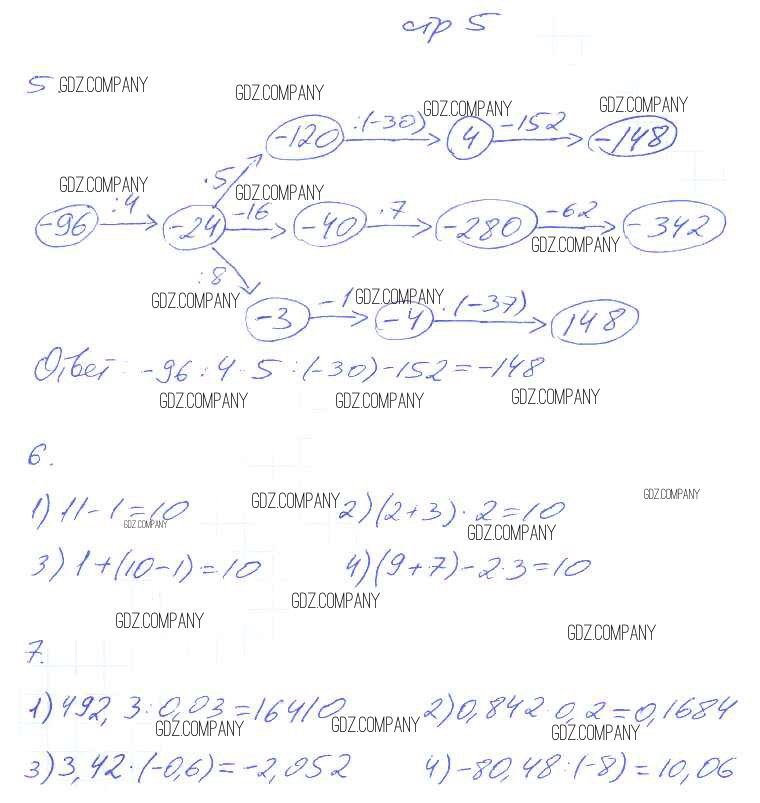 стр 5
5. GDZ.COMPANY GDZ.COMPANY GDZ.COMPANY GDZ.COMPANY
-120 :(-30) 4 -152 -148
GDZ.COMPANY ·5 GDZ.COMPANY
-96 :4 -24 -16 -40 ·7 -280 -62 -342
GDZ.COMPANY
:8 GDZ.COMPANY GDZ.COMPANY
-3 -1 -4 ·(-37) 148
Ответ: -96 : 4 · 5 : (-30) - 152 = -148
GDZ.COMPANY GDZ.COMPANY GDZ.COMPANY
6.
GDZ.COMPANY GDZ.COMPANY
1) 11 - 1 = 10 2) (2+3) · 2 = 10
GDZ.COMPANY GDZ.COMPANY
3) 1 + (10 - 1) = 10 4) (9+7) - 2·3 = 10
GDZ.COMPANY
GDZ.COMPANY GDZ.COMPANY
7.
1) 492,3 : 0,03 = 16410 2) 0,842 · 0,2 = 0,1684
GDZ.COMPANY GDZ.COMPANY GDZ.COMPANY
3) 3,42 · (-0,6) = -2,052 4) -80,48 : (-8) = 10,06